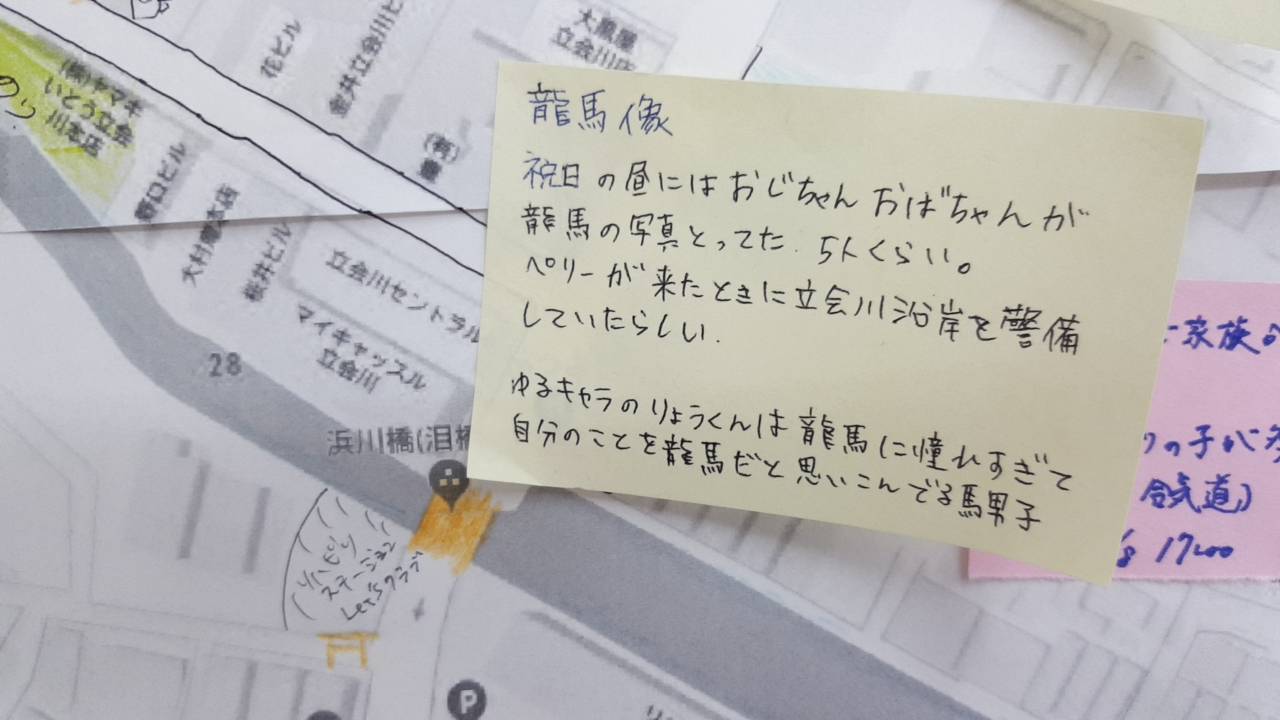 龍馬像
祝日の昼にはおじちゃんおばちゃんが
龍馬の写真とってた. 5人くらい。
ペリーが来たときに立会川沿岸を警備
していたらしい.
ゆるキャラのりょうくんは龍馬に憧れすぎて
自分のことを龍馬だと思いこんでる馬男子
大黒屋
立会川店
花ビル
金井立会川ビ
(有)
(株)ヤマキ
いとう立会
川本店
野口ビル
桜井ビル
立会川セントラル
マイキャッスル
立会川
28
浜川橋(泪橋
リハビリ
ステーション
Let'sクラブ
P
家族
の子が
合気道)
17:00